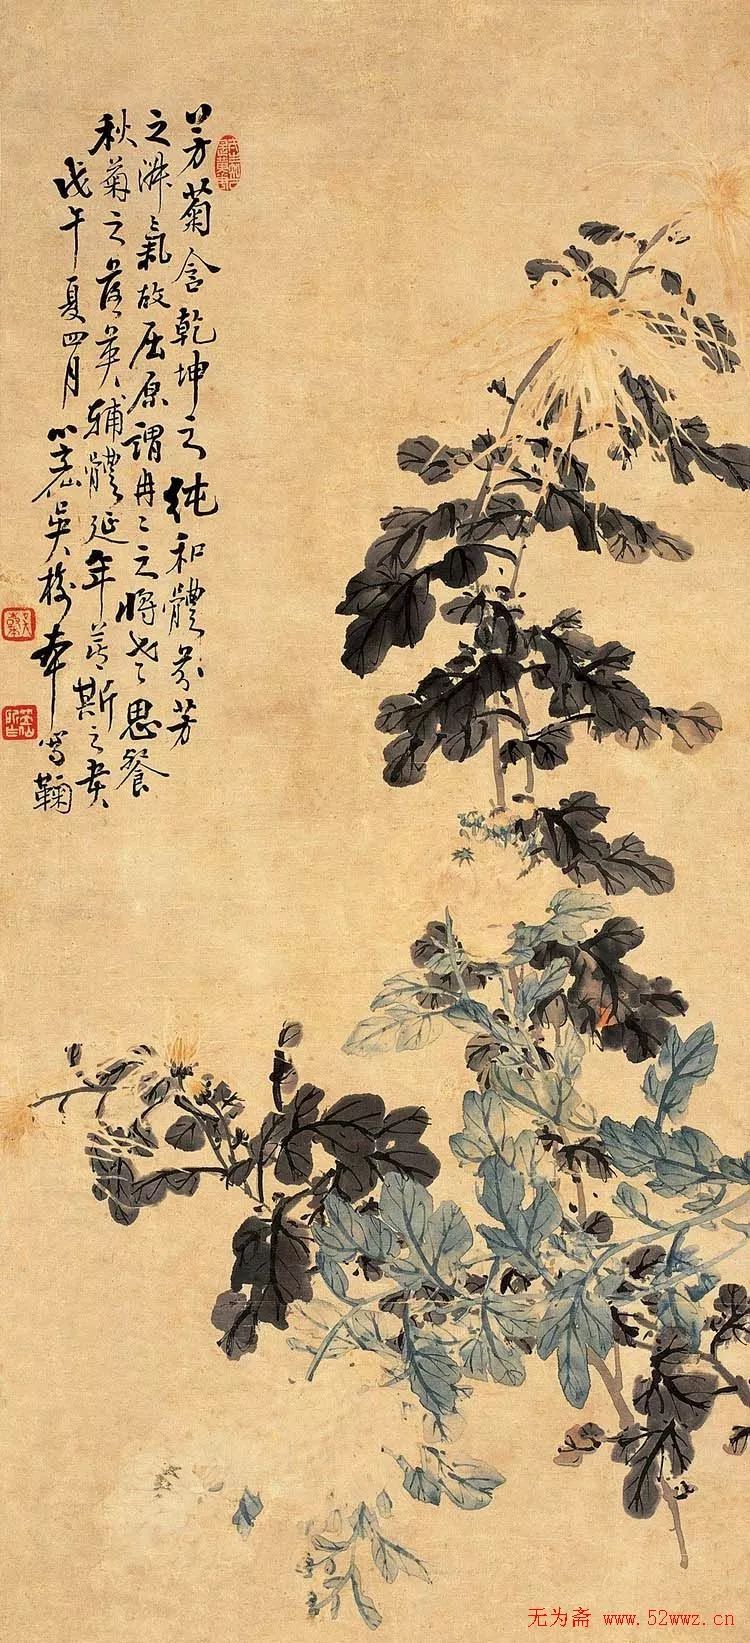 芳菊含乾坤之纯和體芬芳
之淑氣故屈原謂冉冉之將老思餐
秋菊之落英輔體延年莫斯之貴
戊午夏四月 小巖吳梅 寫鞠
无为斋 www.52wwz.cn